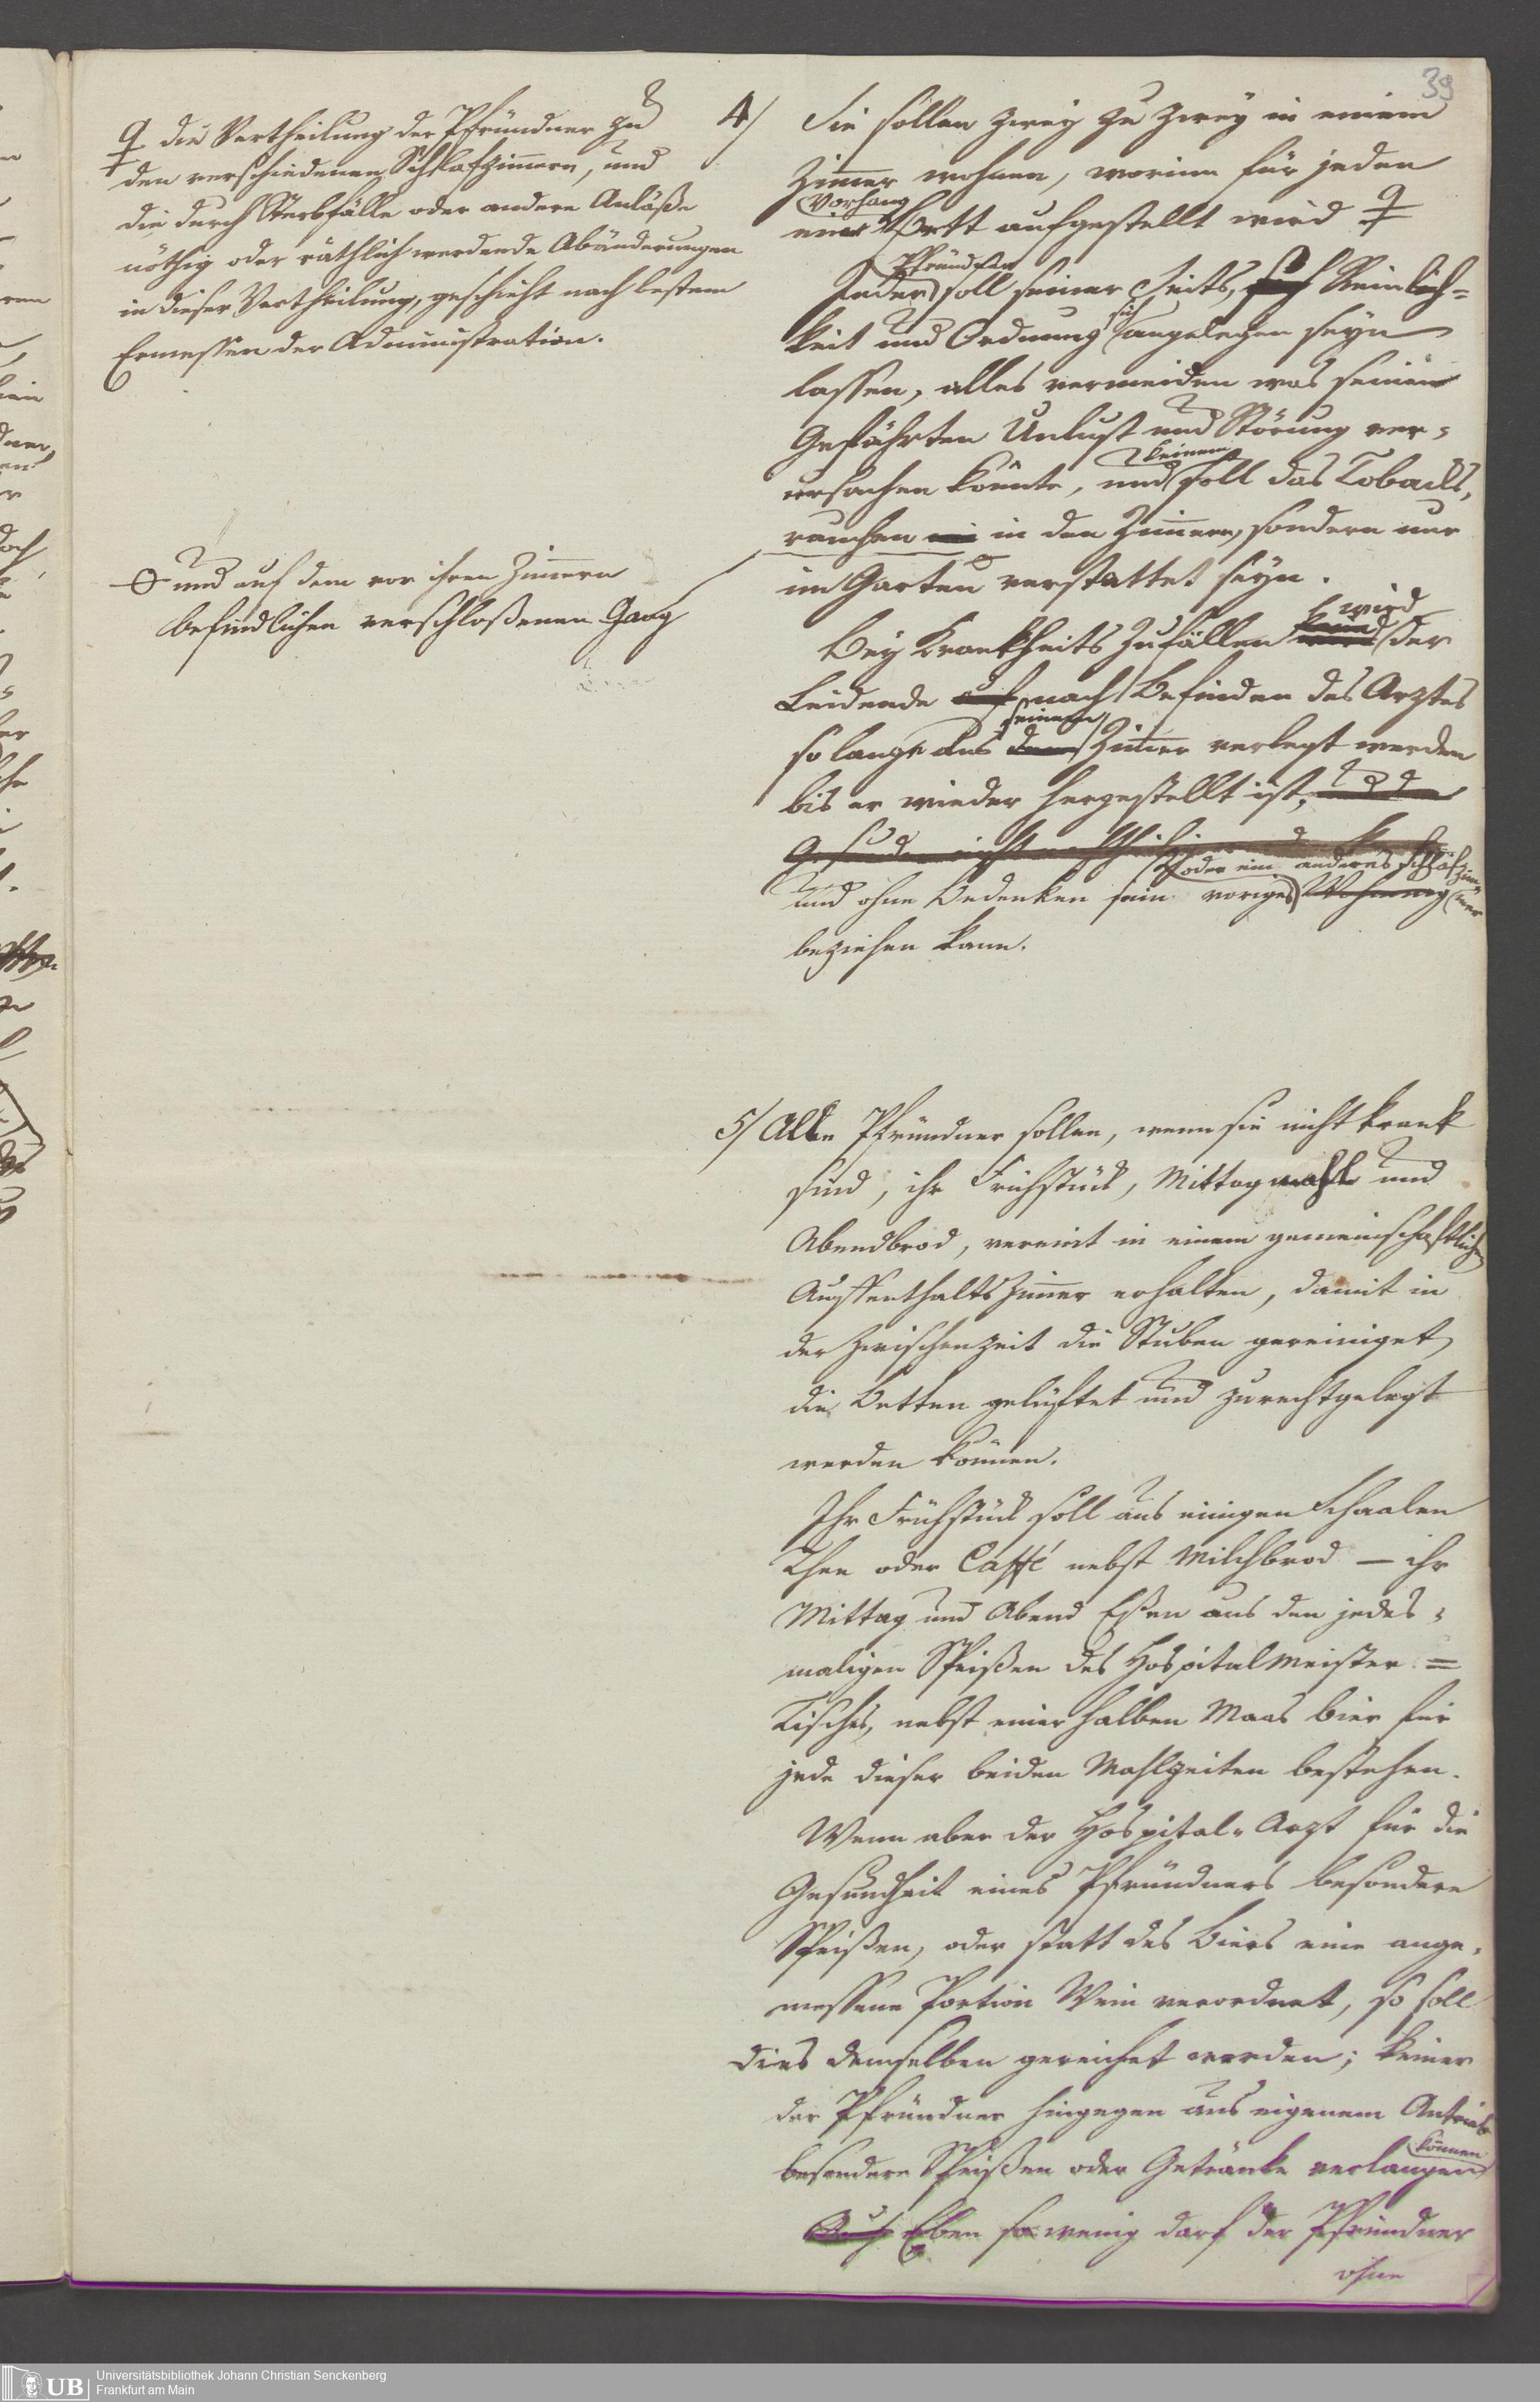 39
♀ die Vertheilung der Pfründner zu
den verschiedenen Schlafzimmern, und
die durch Sterbfälle oder andere Anläße
nöthig oder räthlich werdende Abänderungen
in dieser Vertheilung, geschieht nach bestem
Ermessen der Administration.
und auf dem vor ihren Zimmern
befindlichen verschloßenen Gang
4/ Sie sollen zwey zu zwey in einem
Zimmer wohnen, worinn für jeden
Vorhang
ein Bett aufgestellt wird ♀
Pfründner
Jeder soll seiner Seits, sich Reinlich=
keit und Ordnung sich angelegen seyn
lassen, alles vermeiden was seinem
Gefährten Unlust und Störung ver=
keinem
ursachen könnte, und soll das Tobacks,
rauchen nie in den Zimmern, sondern nur
im Garten verstattet seyn.
wird
Bey Krankheits Zufällen kann der
Leidende auf nach Befinden des Arztes
seinem
so lange aus dem Zimmer verlegt werden
bis er wieder hergestellt ist,
oder ein anderes Schlafzim=
und ohne Bedenken sein voriges Wohnung mer
beziehen kann.
5/ Alle Pfründner sollen, wenn sie nicht krank
sind, ihr Frühstück, Mittagmahl und
Abendbrod, vereint in einem gemeinschaftlichen
Auffenthalts Zimmer erhalten, damit in
der Zwischenzeit die Stuben gereiniget,
die Betten gelüftet und zurechtgelegt
werden können.
Ihr Frühstück soll aus einigen Schaalen
Thee oder Caffé nebst Milchbrod — ihr
Mittag und Abend Eßen aus den jedes=
maligen Speißen des Hospitalmeister =
Tisches, nebst einer halben Maas Bier für
jede dieser beiden Mahlzeiten bestehen.
Wenn aber der Hospital=Arzt für die
Gesundheit eines Pfründners besondere
Speißen, oder statt des Biers eine ange=
messene Portion Wein verordnet, so soll
dies demselben gereichet werden; keiner
der Pfründner hingegen aus eigenem Antrieb
können
besondere Speißen oder Getränke verlangen
Auch Eben so wenig darf der Pfründner
ohne
UB
Universitätsbibliothek Johann Christian Senckenberg
Frankfurt am Main